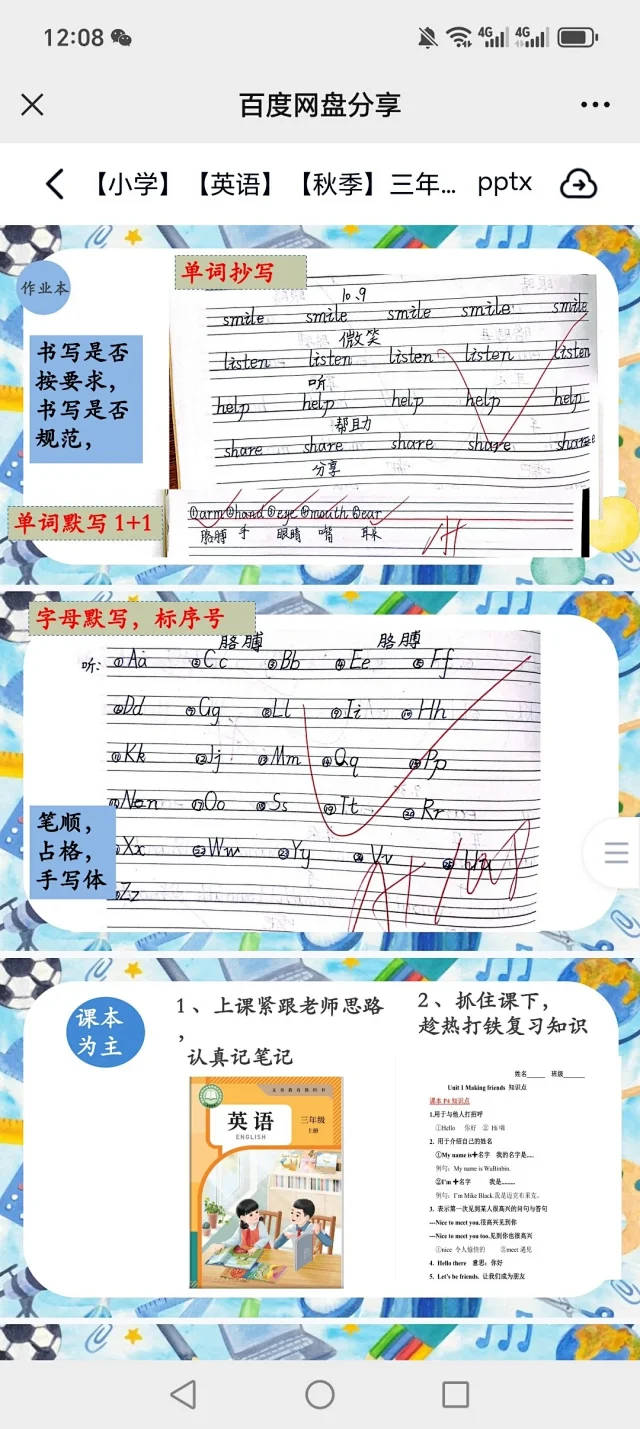 12:08
4G 4G
百度网盘分享
【小学】【英语】【秋季】三年... pptx
作业本
单词抄写
10、9
smile smile smile smile smile
微笑
listen listen listen listen listen
听
help help help help help
帮助
share share share share share
分享
书写是否
按要求，
书写是否
规范，
单词默写 1+1
①arm ②hand ③eye ④mouth ⑤ear
胳膊 手 眼睛 嘴 耳朵
A+
字母默写，标序号
胳膊 胳膊
听: ①Aa ②Cc ③Bb ④Ee ⑤Ff
⑥Dd ⑦Gg ⑧Ll ⑨Ii ⑩Hh
⑪Kk ⑫Jj ⑬Mm ⑭Qq ⑮Pp
⑯Nn ⑰Oo ⑱Ss ⑲Tt ⑳Rr
Xx Ww Yy Vv Uu
Zz
A+
笔顺，
占格，
手写体
课本
为主
1、上课紧跟老师思路
，
认真记笔记
2、抓住课下，
趁热打铁复习知识
英语
ENGLISH
三年级
上册
姓名______ 班级______
Unit 1 Making friends 知识点
课本 P4 知识点
1.用于与他人打招呼
①Hello 你好 ② Hi 嗨
2. 用于介绍自己的姓名
①My name is+名字 我的名字是....
例句：My name is WuBinbin.
②I'm +名字 我是........
例句：I'm Mike Black.我是迈克布莱克。
3. 表示第一次见到某人很高兴的问句与答句
---Nice to meet you.很高兴见到你
---Nice to meet you too.见到你也很高兴
①nice 令人愉快的 ②meet 遇见
4. Hello there 意思：你好
5. Let's be friends. 让我们成为朋友